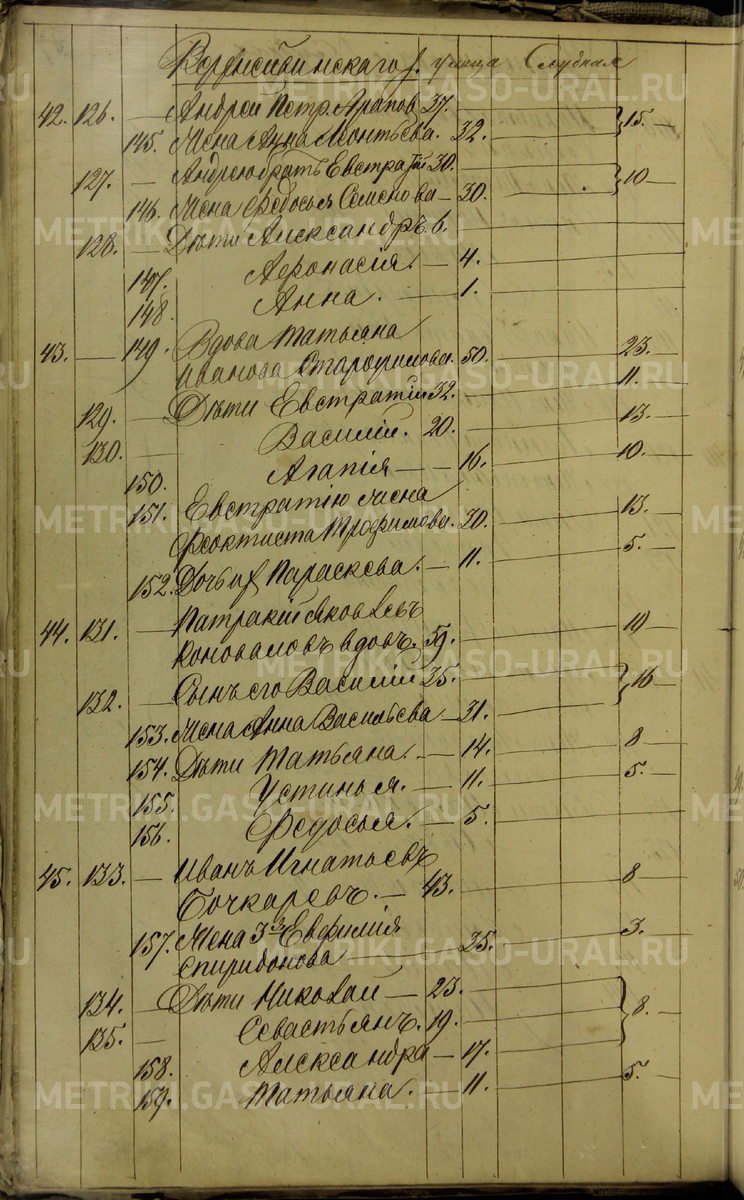 улица
42. 126. — Андрей Петр. Арапов 37. — } 15. —
145. Жена Анна Леонтьева. 32. —
127. — Андрею братъ Евстратій 30. — } 10 —
146. Жена Федосья Семенова — 30. —
128. — Дѣти Александръ. 6.
147. Афонасія. — 4. —
148. Анна. — 1. —
43. — 149. Вдова Татьяна
Иванова 50. — 23. —
129. — Дѣти Евстратій 32. — 11. —
130. — Василій. 20. — 13. —
150. Агапія — 16. — 10. —
151. Евстратію жена
Феоктиста Трофимова. 30. — 13. —
152. Дочь их Параскева. — 11. — 5. —
44. 131. — Патракій Яковлевъ
Коноваловъ вдовъ. 59. — 10 —
132. — Сынъ его Василій 35. — } 16 —
153. Жена Анна Васильева — 31. —
154. Дѣти Татьяна. — 14. — 8 —
155. Устинья. — 11. — 5. —
156. Федосья. — 5. —
45. 133. — Иванъ Игнатьевъ
Бочкаревъ. — 43. — 8 —
157. Жена 3й Евфимія
Спиридонова 35. — 3. —
134. — Дѣти Николай — 23. — } 8. —
135. — Севастьянъ. 19. —
158. Александра — 17. —
159. Татьяна. — 11. — 5. —
METRIKI.GASO-URAL.RU